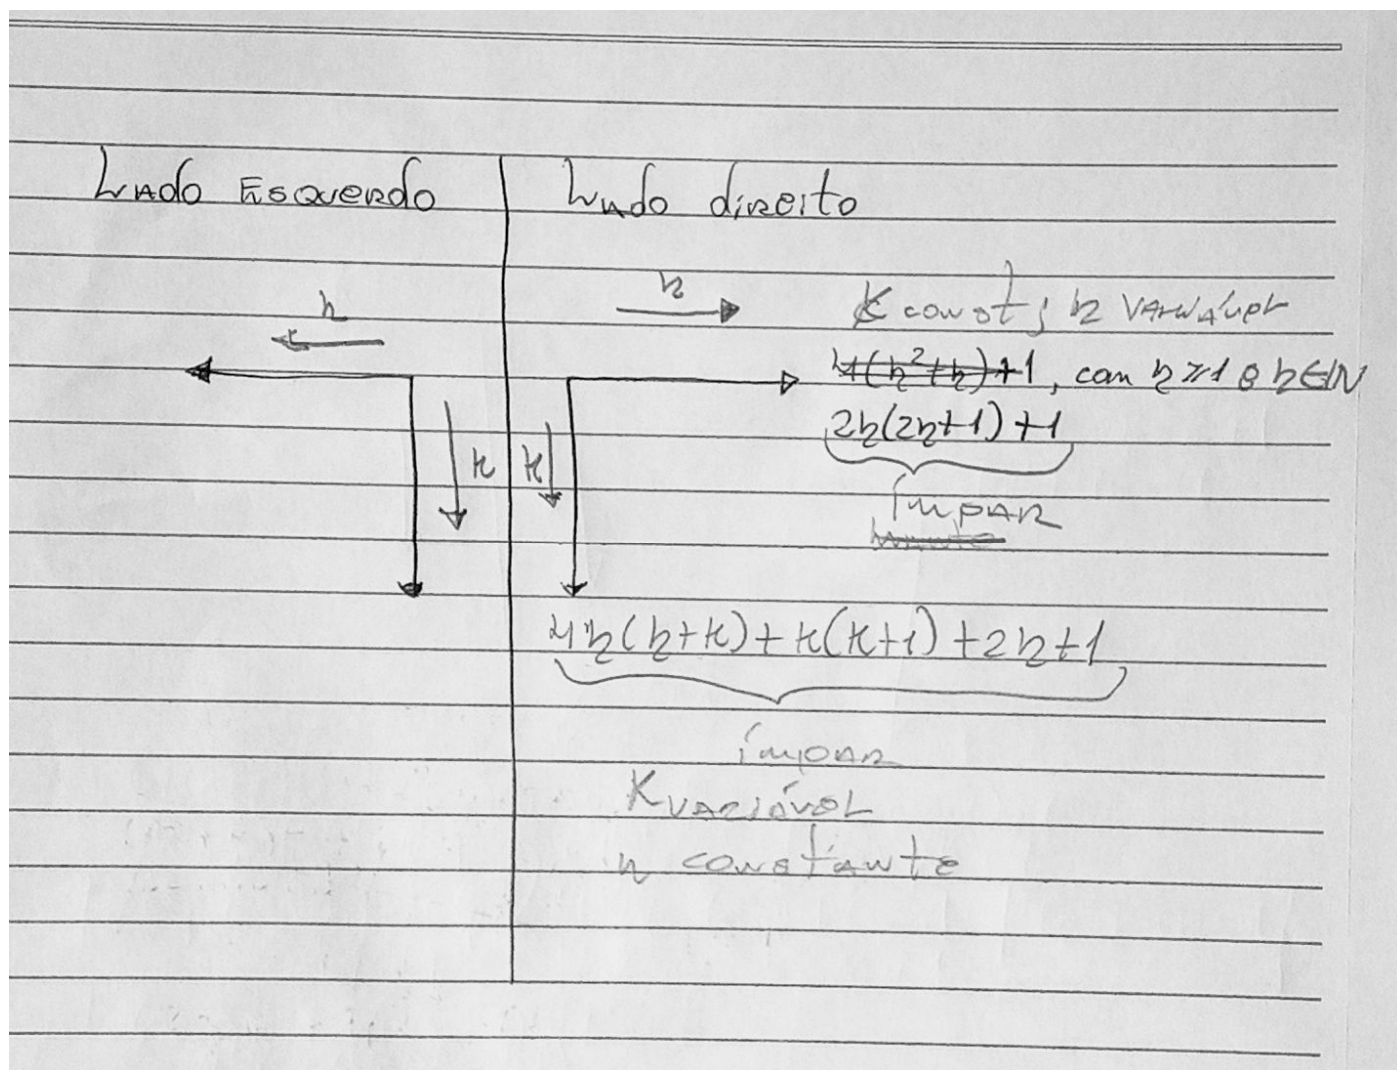 Lado Esquerdo
Lado direito
n
n
K const; n variável
4(n²+n)+1, com n≥1 e n∈IN
2n(2n+1)+1
ímpar
k
k
4n(n+k)+k(k+1)+2n+1
ímpar
K variável
n constante